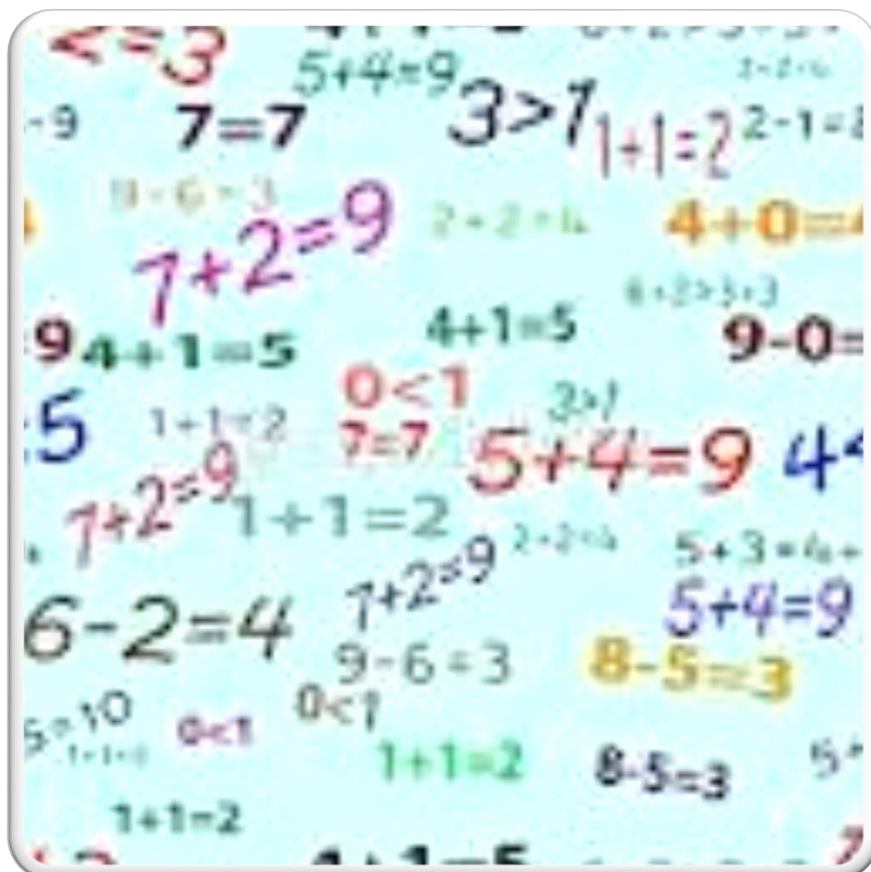 2=3
5+4=9
-9
7=7
3>1
1+1=2
2-1=
9-6=3
7+2=9
2+2=4
4+0=
6+2>3+3
9
4+1=5
4+1=5
9-0=
0<1
5
1+1=2
3>1
7=7
5+4=9
4<
7+2=9
1+1=2
2+2=4
5+3=4+
7+2=9
6-2=4
5+4=9
9-6=3
8-5=3
5=10
0<1
0<1
1+1=2
1+1=2
8-5=3
5+
1+1=2
4+1=5